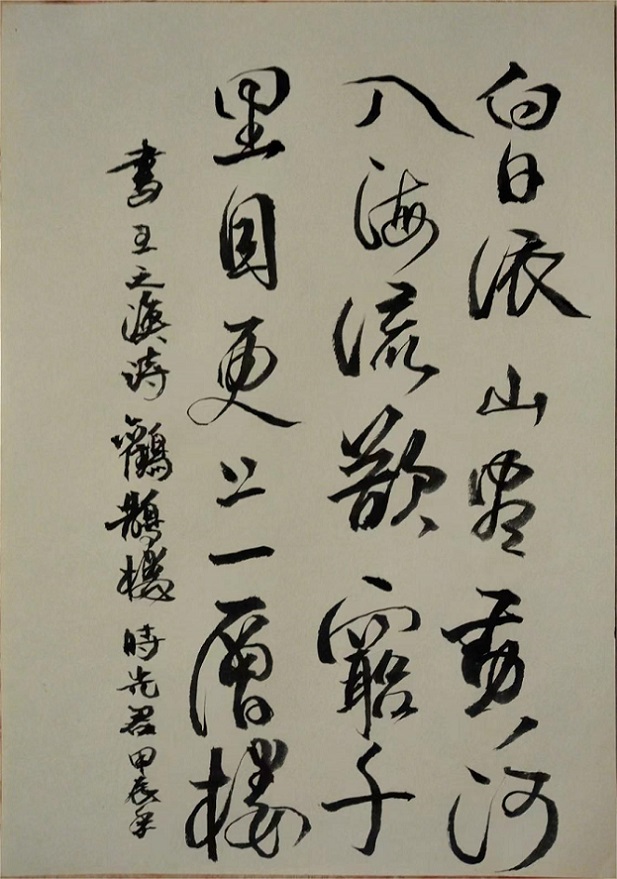 白日依山盡黃河
入海流欲窮千
里目更上一層樓
書王之渙詩鸛鵲樓時先君甲辰年